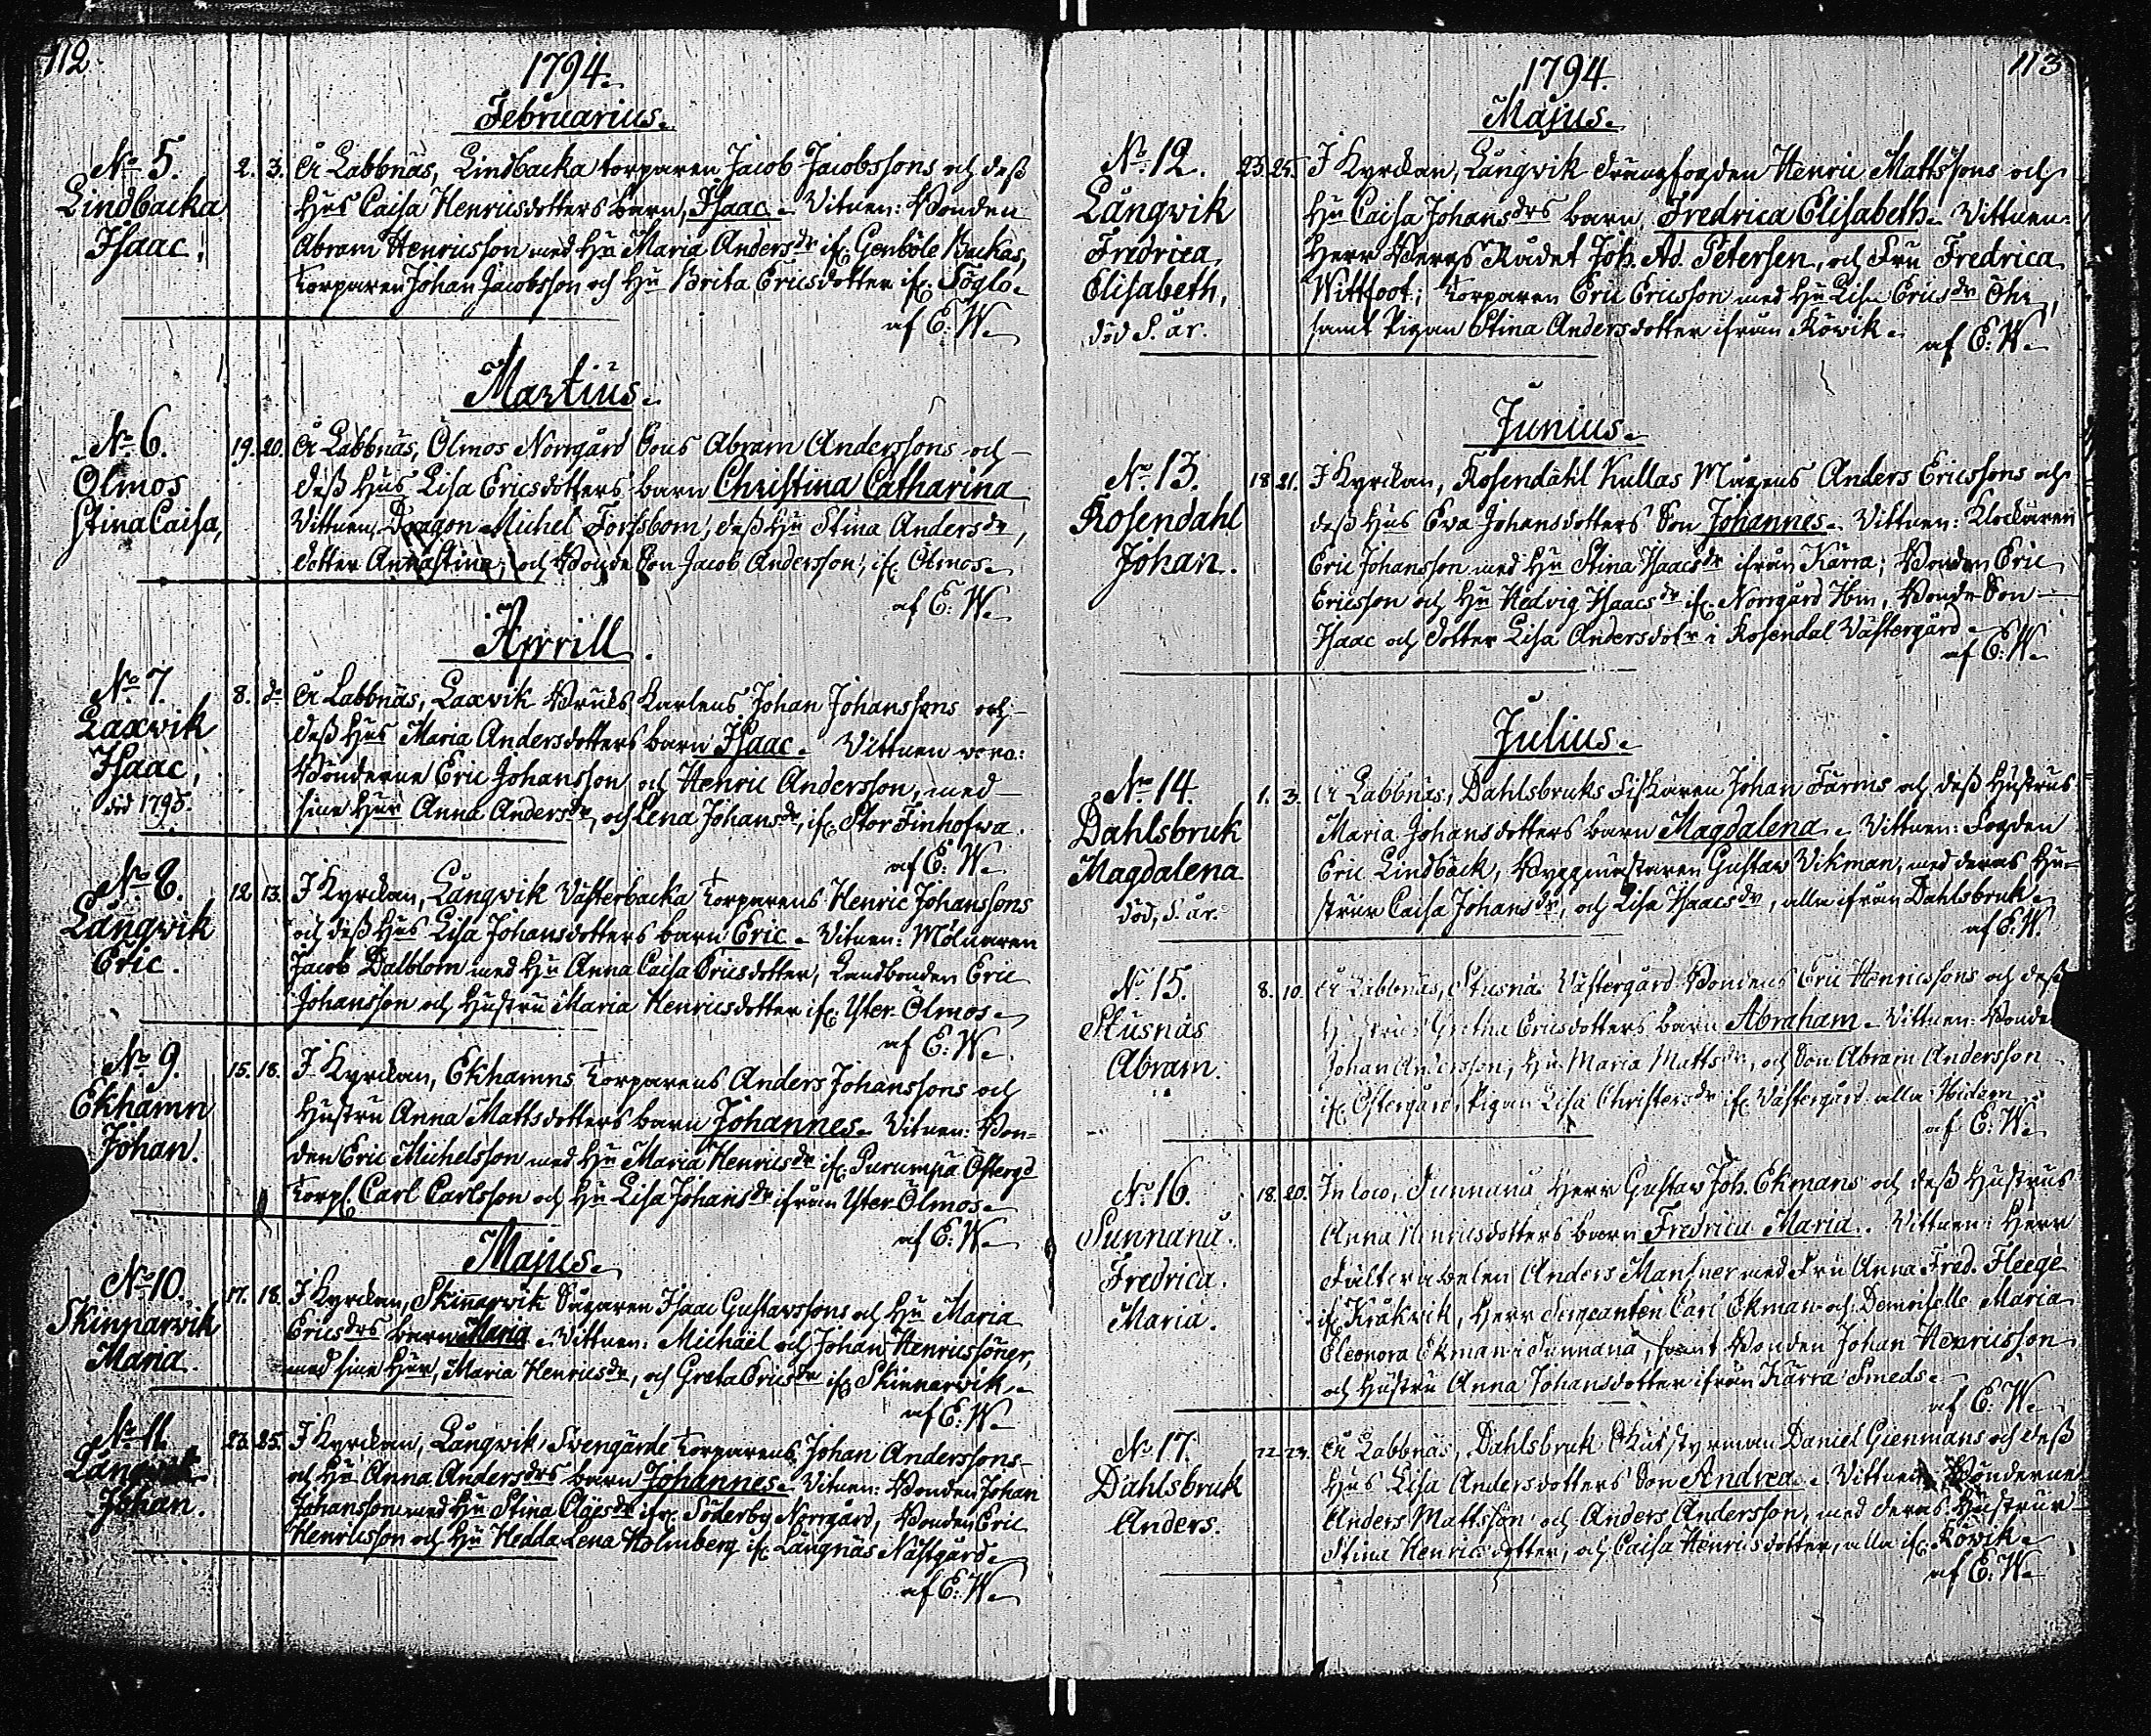 112
1794.
Februarius.
No 5.
Lindbacka
Isaac,
2. 3. Å Labbnäs, Lindbacka torparen Jacob Jacobssons och dess
Hus Caisa Henricsdotters barn, Isaac. Vitnen: Bonden
Abram Henricsson med Hu Maria Andersdr ifr. Genböle Backas,
Torparen Johan Jacobsson och Hu Brita Ericsdotter ifr. Söglo.
af E: W.
Martius.
No 6.
Ölmos
Stina Caisa,
19. 20. Å Labbnäs, Ölmos Norrgård Sons Abram Anderssons och
dess Hus Lisa Ericsdotters barn Christina Catharina
Vittnen, Dragon Michel Forssbom, dess Hu Stina Andersdr,
dotter Anna Stina, och Bonde Son Jacob Andersson, ifr Ölmos.
af E: W.
Aprill.
No 7.
Laxvik
Isaac,
död 1795.
8. do Å Labbnäs, Laxvik Bruks Karlens Johan Johanssons och
dess Hus Maria Andersdotters barn Isaac. Vittnen voro:
Bönderne Eric Johansson och Henric Andersson, med
sine Hur Anna Andersdr, och Lena Johansdr, ifr. Stor Finhofwa.
af E: W.
No 8.
Långwik
Eric.
12. 13. I Kyrckan, Långwik Västerbacka Torparens Henric Johanssons
och dess Hus Lisa Johansdotters barn Eric. Vitnen: Mölnaren
Jacob Dalblom med Hu Anna Caisa Ericsdotter, Landbonden Eric
Johansson och Hustru Maria Henricsdotter ifr. Yster Ölmos.
af E: W.
No 9.
Ekhamn
Johan.
15. 18. I Kyrckan, Ekhamns Torparens Anders Johanssons och
Hustru Anna Mattsdotters barn Johannes. Vitnen: Bon-
den Eric Michelsson med Hu Maria Henricsdr ifr. Purumpä Östergd
Torp. Carl Carlsson och Hu Lisa Johansdr ifrån Yster Ölmos.
af E: W.
Majus.
No 10.
Skinnarwik
Maria.
17. 18. I Kyrckan, Skinnarwik Sågaren Isaac Gustavssons och Hu Maria
Ericsdrs barn Maria. Vittnen: Michäel och Johan Henricssöner,
med sine Hur, Maria Henricsdr, och Greta Ericsdr ifr Skinnarwik.
af E: W.
No 11.
Långwik
Johan.
23. 25. I Kyrckan, Långwik, Svengärde Torparens Johan Anderssons
och Hu Anna Andersdrs barn Johannes. Vitnen: Bonden Johan
Johansson med Hu Stina Claesdr ifr. Söderby Norrgård, Bonden Eric
Henricsson och Hu Hedda Lena Holmberg ifr. Långnäs Nästgård.
af E: W.
113
1794.
Majus.
No 12.
Långwik
Fredrica
Elisabeth,
död S. år.
23. 25. I Kyrckan, Långwik drängfogden Henric Mattssons och
Hu Caisa Johansdrs barn, Fredrica Elisabeth. Vittnen:
Herr Bergs Rådet Joh. Ad. Petersen, och Fru Fredrica
Wittfoot; Torparen Eric Ericsson med Hu Lisa Ericsdr Öhr,
samt Pigan Stina Andersdotter ifrån Röwik.
af E: W.
Junius.
No 13.
Rosendahl
Johan.
18 21. I Kyrckan, Rosendahl Kullas Mågens Anders Ericssons och
dess Hus Eva Johansdotters Son Johannes. Vittnen: Klockaren
Eric Johansson med Hu Stina Isaacsdr ifrån Kärra; Bonden Eric
Ericsson och Hu Hedvig Isaacsdr ifr. Norrgård Ibm, Bonde Son
Isaac och dotter Lisa Andersdotr i Rosendal Västergård.
af E: W.
Julius.
No 14.
Dahlsbruk
Magdalena
död, S. år.
1. 3. Å Labbnäs, Dahlsbruks Fiskaren Johan Färms och dess Hustrus
Maria Johansdotters barn Magdalena. Vittnen: Fogden
Eric Lindbäck, Byggmästaren Gustav Vikman, med deras Hu-
strur Caisa Johansdr, och Lisa Isaacsdr, alla ifrån Dahlsbruk.
af E: W.
No 15.
Stusnäs
Abram.
8. 10. Å Labbnäs, Stusnäs Västergård Bondens Eric Henricssons och dess
Hustrus Gretha Ericsdotters barn Abraham. Vittnen: Bonden
Johan Andersson, Hu Maria Mattsdr, och Son Abram Andersson
ifr. Östergård, Pigan Lisa Christersdr ifr. Västergård alla ibidem.
af E: W.
No 16.
Sunnanå.
Fredrica.
Maria.
18. 20. In loco, Sunnanå Herr Gustav Joh. Ekmans och dess Hustrus
Anna Henricsdotters barn Fredrica Maria. Vittnen: Herr
Anders Mansner med Fru Anna Fred. Fleege
ifr. Kråkvik, Herr Sergeanten Carl Ekman och Demoiselle Maria
Eleonora Ekman i Sunnanå, samt Bonden Johan Henricsson
och Hustru Anna Johansdotter ifrån Kärra Smeds.
af E: W.
No 17.
Dahlsbruk
Anders.
22. 23. Å Labbnäs, Dahlsbruk Skutstyrman Daniel Gienmans och dess
Hus Lisa Andersdotters Son Andrea. Vittnen Bönderne
Anders Mattsson och Anders Andersson, med deras Hustrur
Stina Henricsdotter, och Caisa Henricsdotter, alla ifr. Röwik.
af E: W.